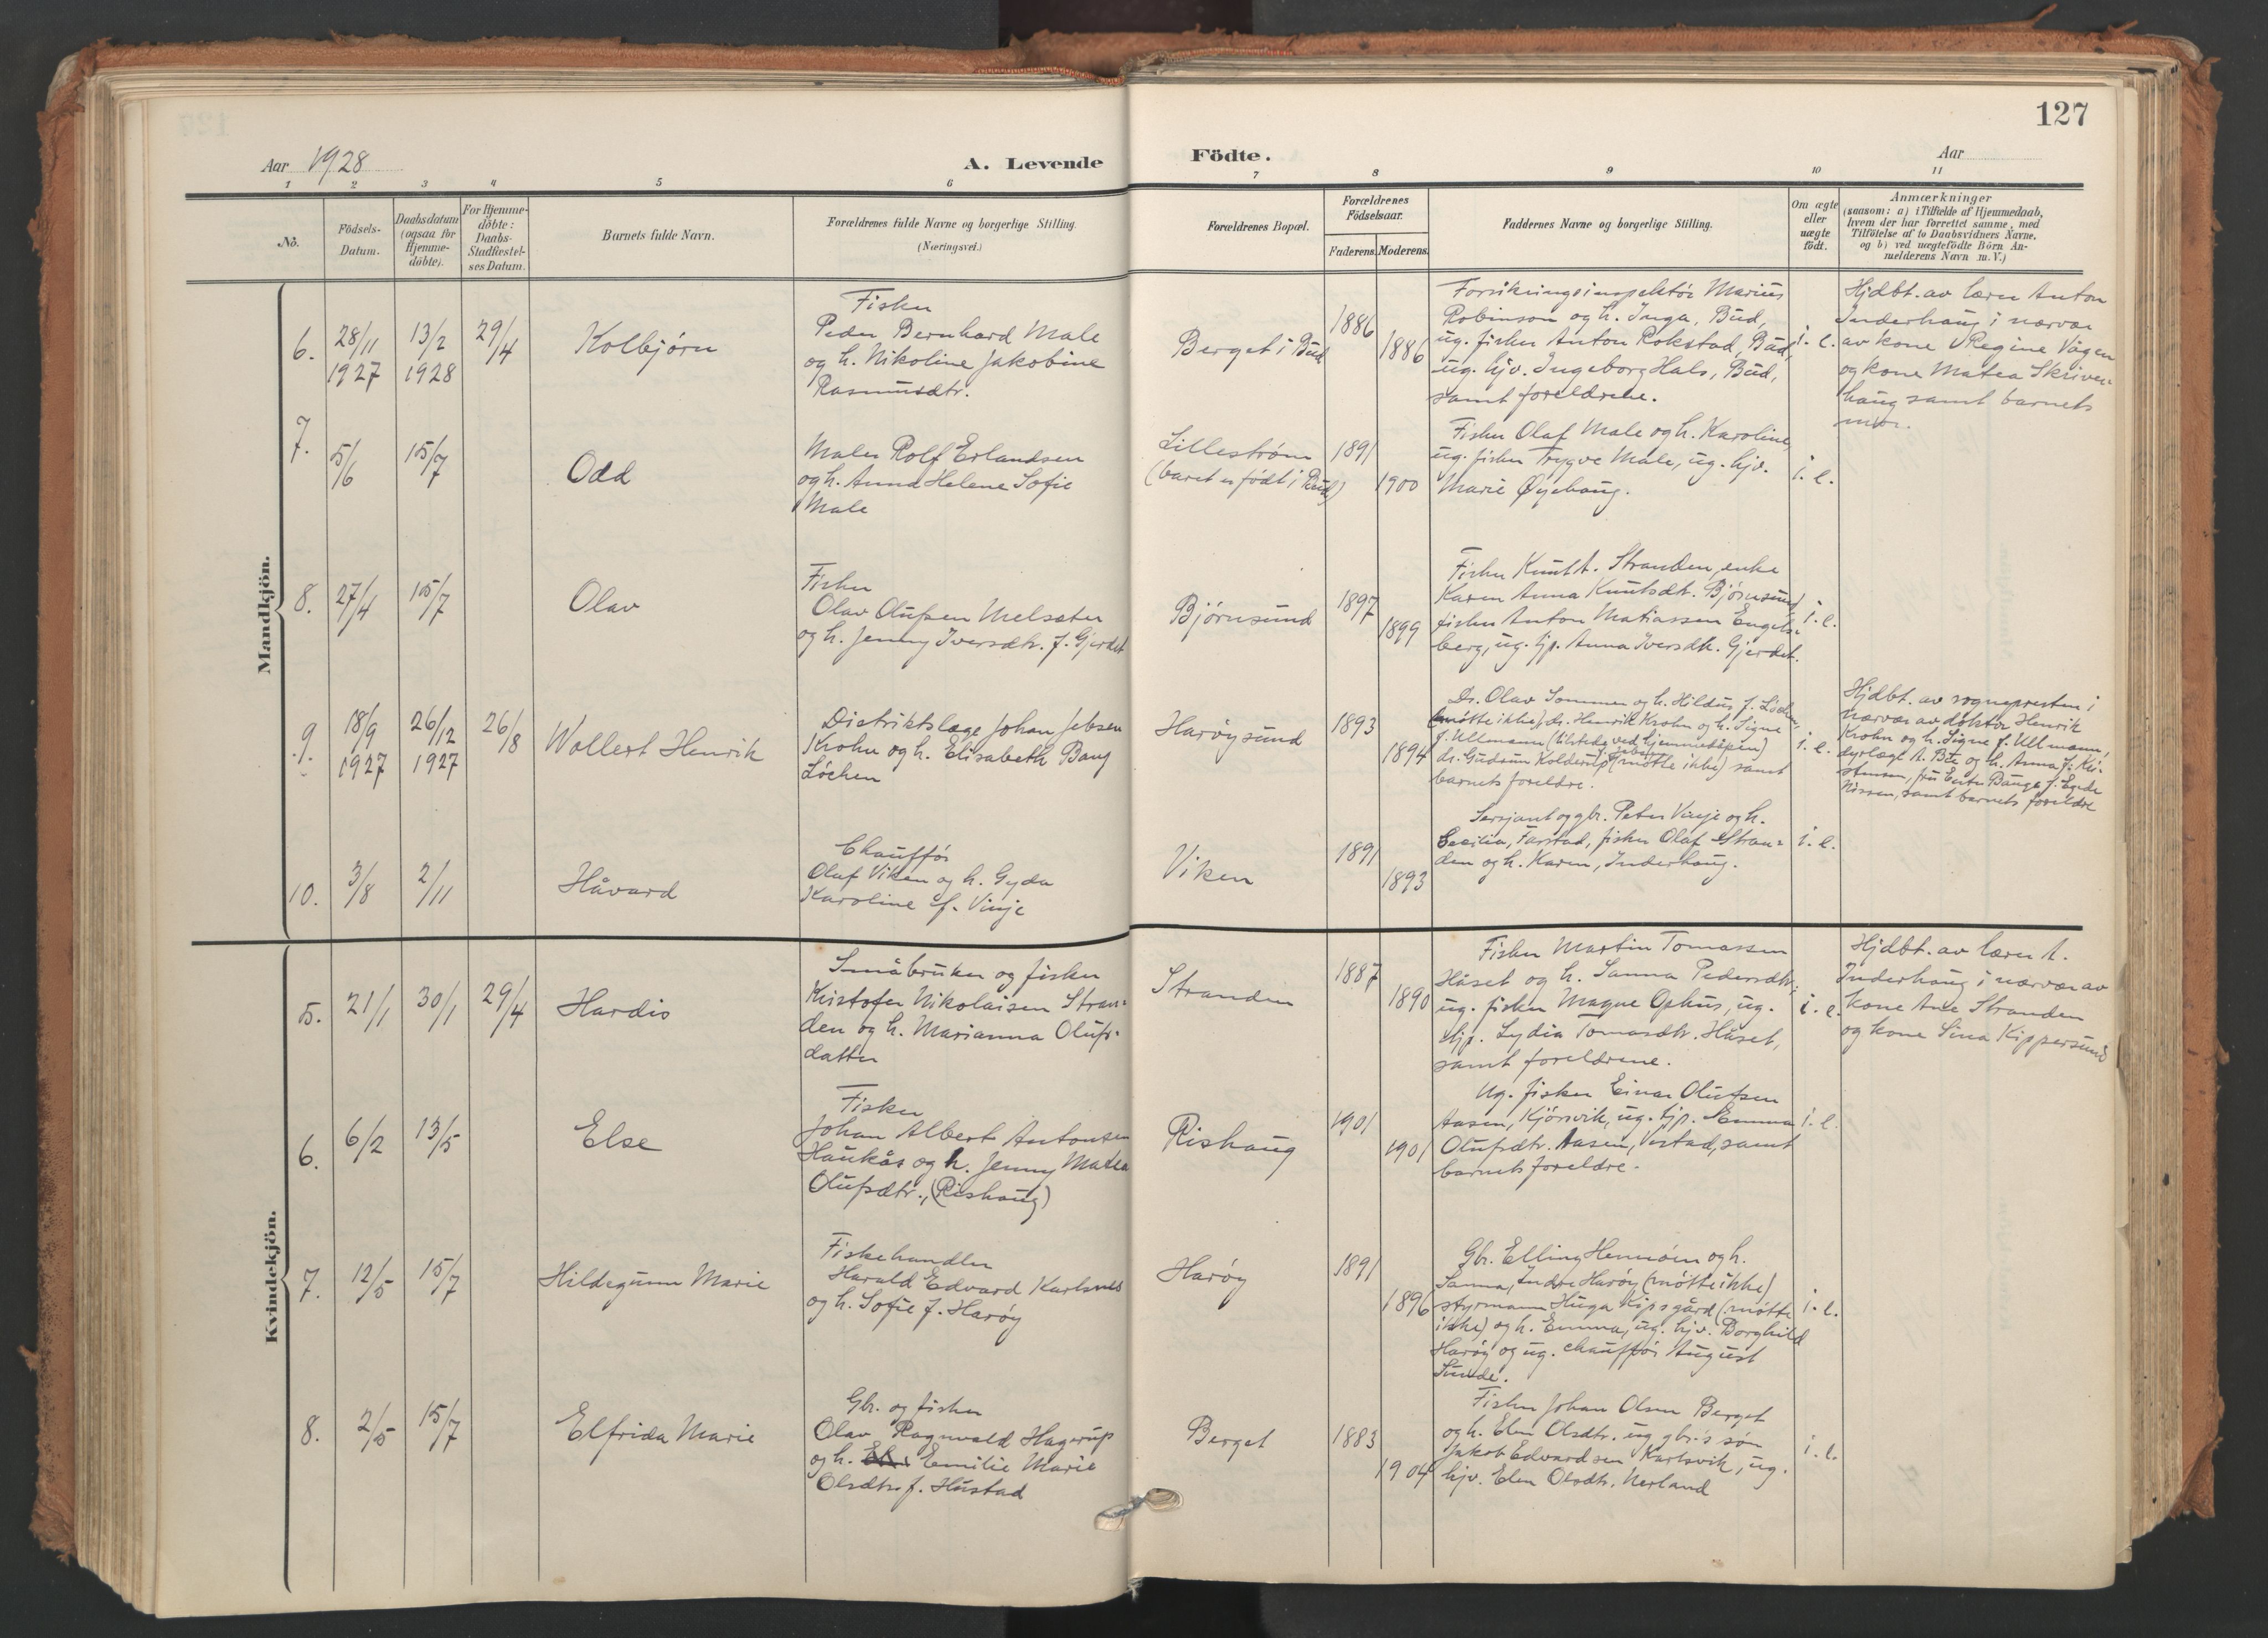 127
Aar 1928
A. Levende
Födte.
Aar
1 2 3 4 5 6 7 8 9 10 11
No.
Födsels-
Datum.
Daabsdatum
(ogsaa for
Hjemme-
döbte).
For Hjemme-
döbte:
Daabs-
Stadfæstel-
ses Datum.
Barnets fulde Navn.
Forældrenes fulde Navne og borgerlige Stilling.
(Næringsvei.)
Forældrenes Bopæl.
Forældrenes
Födselsaar.
Faderens.
Moderens.
Faddernes Navne og borgerlige Stilling.
Om ægte
eller
uægte
födt.
Anmærkninger
(saasom: a) i Tilfælde af Hjemmedaab,
hvem der har forrettet samme, med
Tilföielse af to Daabsvidners Navne,
og b) ved uægtefödte Börn An-
melderens Navn m. V.)
Mandkjön.
6.
28/11
1927
13/2
1928
29/4
Kolbjørn
Fisker
Peder Bernhard Male
og h. Nikoline Jakobine
Rasmusdtr.
Berget i Bud
1886
1886
Forsikringsinspektør Marius
Robinson og h. Inga, Bud,
ug. fisker Anton Rokstad, Bud,
ug. hjv. Ingeborg Hals, Bud,
samt foreldrene.
i. e.
Hjdbt. av lærer Anton
Inderhaug i nærvær
av kone Regine Vågen
og kone Matea Skriven-
haug samt barnets
mor.
7.
5/6
15/7
Odd
Maler Rolf Erlandsen
og h. Anna Helene Sofie
Male
Lillestrøm
(barnet er født i Bud)
1891
1900
Fisker Olaf Male og h. Karoline,
ug. fisker Trygve Male, ug. hjv.
Marie Øyehaug.
i. e.
8.
27/4
15/7
Olav
Fisker
Olav Olufsen Melsæter
og h. Jenny Iversdtr. f. Gjerdet
Bjørnsund
1897
1899
Fisker Knut A. Stranden, enke
Karen Anna Knutsdt. Bjørnsund
fisker Anton Matiassen Engels-
berg, ug. tjp. Anna Iversdtr. Gjerdet.
i. e.
9.
18/9
1927
26/12
1927
26/8
Wollert Henrik
Distriktslæge Johan Jebsen
Krohn og h. Elisabeth Bang
Lochen
Harøysund
1893
1894
Dr. Olav Sommer og h. Hildur f. Lochen,
(møtte ikke), dr. Henrik Krohn og h. Signe
f. Ullmann (tilstede ved hjemmedåpen)
dr. Gudrun Kolderup f. Jebsen (møtte ikke) samt
barnets foreldre.
i. e.
Hjdbt. av sognepresten i
nærvær av doktor Henrik
Krohn og h. Signe f. Ullmann,
dyrlæge A. Bø og h. Anna f. Kri-
stensen, fru Ester Bange f. Egede
Nissen, samt barnets foreldre
10.
3/8
2/11
Håvard
Chauffør
Olaf Viken og h. Gyda
Karoline f. Vinje
Viken
1891
1893
Sersjant og gbr. Peter Vinje og h.
Cecilia, Farstad, fisker Olaf Stran-
den og h. Karen, Inderhaug.
i. e.
Kvindekjön.
5.
21/1
30/1
29/4
Hardis
Småbruker og fisker
Kristofer Nikolaisen Stran-
den og h. Marianna Olufs-
datter
Stranden
1887
1890
Fisker Martin Tomassen
Håset og h. Sanna Pedersdtr.,
ug. fisker Magne Ophus, ug.
tjp. Lydia Tomasdtr. Håset,
samt foreldrene.
i. e.
Hjdbt. av lærer A.
Inderhaug i nærvær av
kone Ane Stranden
og kone Sina Kippersund
6.
6/2
13/5
Else
Fisker
Johan Albert Antonsen
Haukås og h. Jenny Matea
Olufsdtr., (Rishaug)
Rishaug
1901
1901
Ug. fisker Einar Olufsen
Aasen, Kjørsvik, ug. tjp. Emma
Olufsdtr. Aasen, Vestad, samt
barnets foreldre.
i. e.
7.
12/5
15/7
Hildegunn Marie
Fiskehandler
Harald Edvard Karlsnes
og h. Sofie f. Harøy
Harøy
1891
1896
Gbr. Elling Hemnøen og h.
Sanna, Indre Harøy (møtte ikke)
styrmann Huga Kipsgård (møtte
ikke) og h. Emma, ug. hjv. Borghild
Harøy og ug. chauffør August
Sunde.
i. e.
8.
2/5
15/7
Elfrida Marie
Gbr. og fisker
Olav Ragnvald Hagerup
og h. Emilie Marie
Olsdtr. f. Hustad
Berget
1883
1904
Fisker Johan Olsen Berget
og h. Elen Olsdtr. ug. gbr.s søn
Jakob Edvardsen Karlsvik, ug.
hjv. Elen Olsdtr. Nerland
i. e.